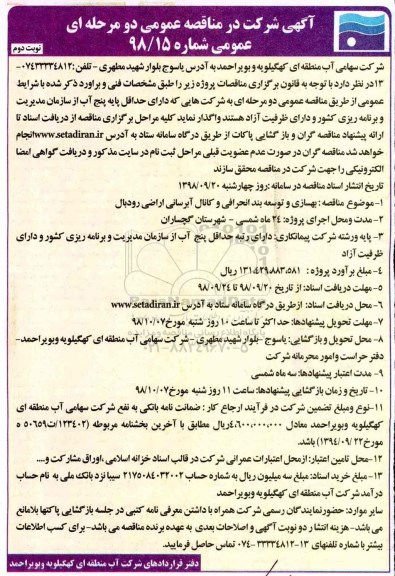 آگهی شرکت در مناقصه عمومی دو مرحله ای
عمومی شماره ۹۸/۱۵
نوبت دوم
شرکت سهامی آب منطقه ای کهگیلویه و بویراحمد به آدرس یاسوج بلوار شهید مطهری - تلفن: ۰۷۴-۳۳۳۳۴۸۱۲
۱۳ در نظر دارد با توجه به قانون برگزاری مناقصات پروژه زیر را طبق مشخصات فنی و براورد ذکر شده با شرایط
عمومی از طریق مناقصه عمومی دو مرحله ای به شرکت هایی که دارای حداقل پایه پنج آب از سازمان مدیریت
و برنامه ریزی کشور و دارای ظرفیت آزاد هستند واگذار نماید کلیه مراحل برگزاری مناقصه از دریافت اسناد تا
ارائه پیشنهاد مناقصه گران و باز گشایی پاکات از طریق درگاه سامانه ستاد به آدرس www.setadiran.ir انجام
خواهد شد مناقصه گران در صورت عدم عضویت قبلی مراحل ثبت نام در سایت مذکور و دریافت گواهی امضا
الکترونیکی را جهت شرکت در مناقصه محقق سازند
تاریخ انتشار اسناد مناقصه در سامانه :روز چهارشنبه ۱۳۹۸/۰۹/۲۰
۱-موضوع مناقصه : بهسازی و توسعه بند انحرافی و کانال آبرسانی اراضی رودبال
۲- مدت ومحل اجرای پروژه: ۲۴ ماه شمسی - شهرستان گچساران
۳- پایه ورشته شرکت پیمانکاری: دارای رتبه حداقل پنج آب از سازمان مدیریت و برنامه ریزی کشور و دارای
ظرفیت آزاد
۴- مبلغ برآورد پروژه : ۱۳۱،۴۲۹،۸۸۳،۵۸۱ ریال
۵- مهلت دریافت اسناد: از تاریخ ۹۸/۰۹/۲۰ تا ۹۸/۰۹/۲۴
۶- محل دریافت اسناد: ازطریق درگاه سامانه ستاد به آدرس www.setadiran.ir
۷- مهلت تحویل پیشنهادها: حداکثر تا ساعت ۱۰ روز شنبه مورخ ۹۸/۱۰/۰۷
۸- محل تحویل و بازگشایی: یاسوج -بلوار شهید مطهری - شرکت سهامی آب منطقه ای کهگیلویه وبویراحمد-
دفتر حراست وامور محرمانه شرکت
۹- مدت اعتبار پیشنهادها: سه ماه شمسی
۱۰- تاریخ و زمان بازگشایی پیشنهادها: ساعت ۱۱ روز شنبه مورخ ۹۸/۱۰/۰۷
۱۱-نوع ومبلغ تضمین شرکت در فرآیند ارجاع کار : ضمانت نامه بانکی به نفع شرکت سهامی آب منطقه ای
کهگیلویه وبویراحمد معادل ۴،۶۰۰،۰۰۰،۰۰۰ ریال مطابق با آخرین بخشنامه مربوطه (۱۲۳۴۰۲/ت ۵۰۶۵۹ ه
مورخ ۱۳۹۴/۰۹/۲۲) باشد.
۱۲-محل تامین اعتبار: ازمحل اعتبارات عمرانی شرکت در قالب اسناد خزانه اسلامی ،اوراق مشارکت و....
۱۳- مبلغ خرید اسناد: مبلغ سه میلیون ریال به شماره حساب ۲۱۷۵۰۸۴۰۳۲۰۰۲ سیبا نزد بانک ملی به نام حساب
درآمد شرکت آب منطقه ای کهگیلویه وبویراحمد
سایر موارد: حضورنمایندگان رسمی شرکت همراه با داشتن معرفی نامه کتبی در جلسه بازگشایی پاکتها بلامانع
می باشد- هزینه انتشار دو نوبت آگهی و اصلاحات بعدی به عهده برنده مناقصه می باشد- برای کسب اطلاعات
بیشتر با شماره تلفنهای ۱۳-۳۳۳۳۴۸۱۲-۰۷۴ تماس حاصل فرمایید.
دفتر قراردادهای شرکت آب منطقه ای کهگیلویه وبویراحمد